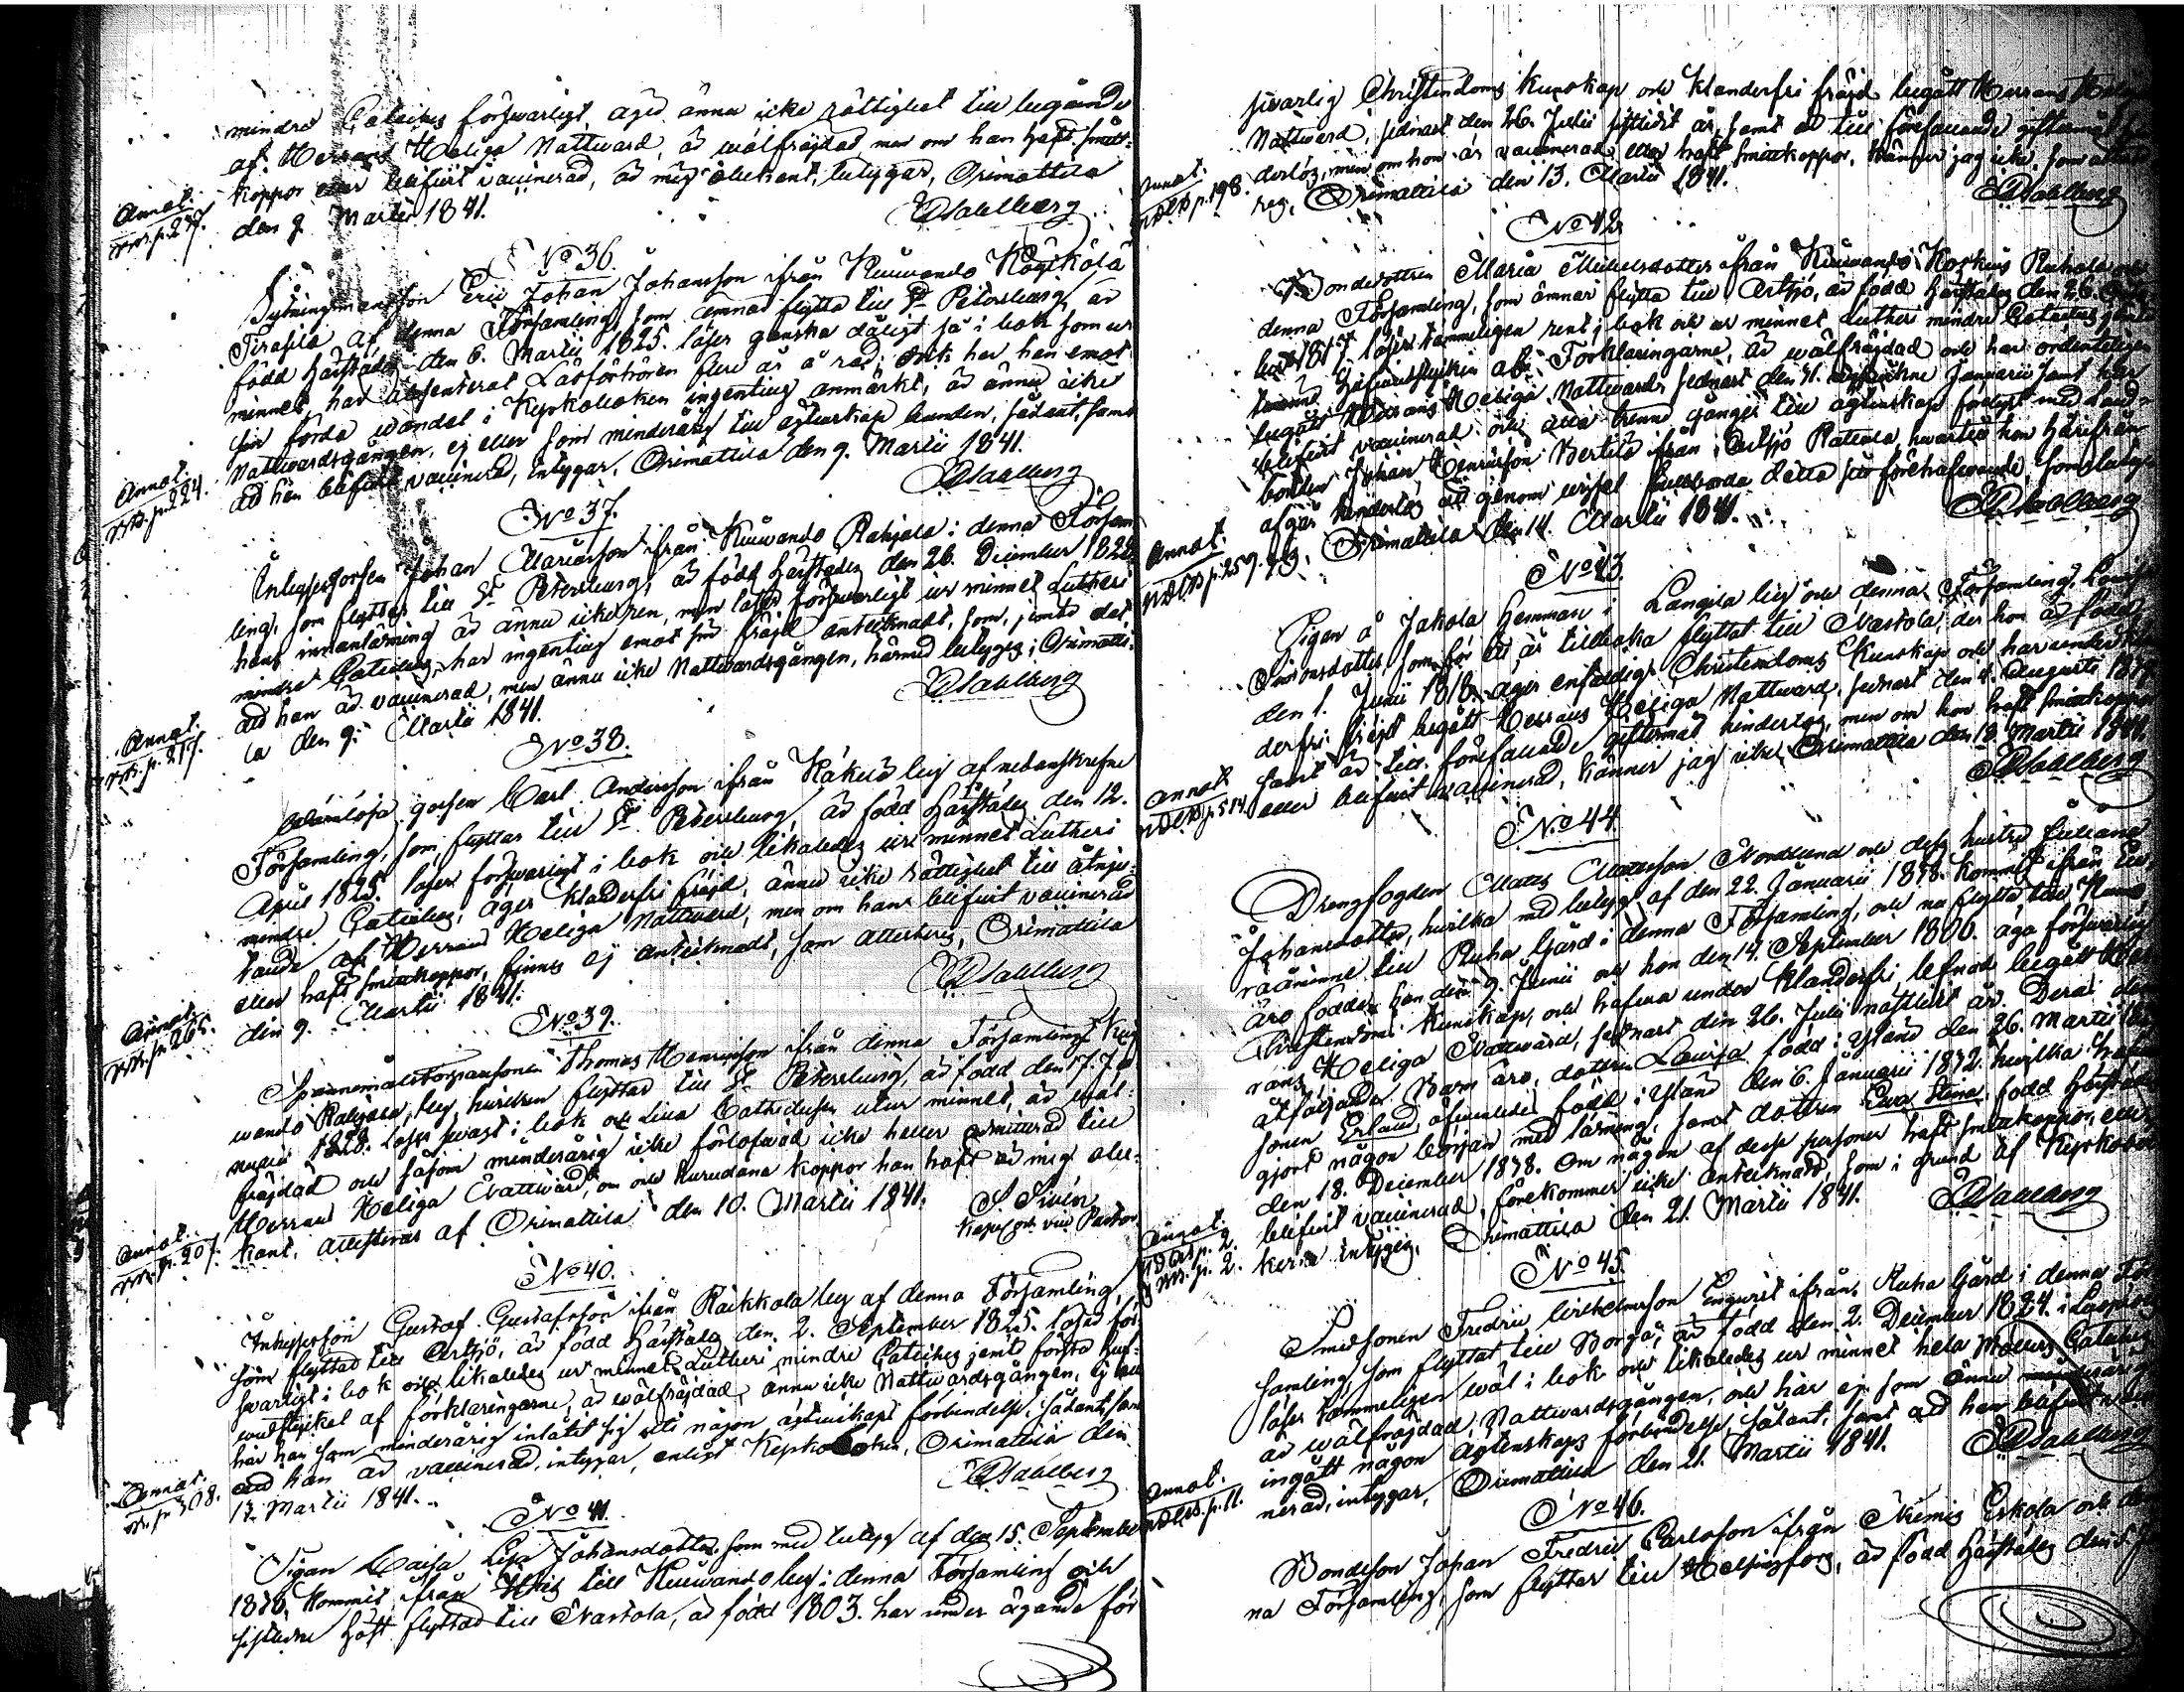 mindre Cateches förswarligt, äger ännu icke rättighet till begående
af Herrans Heliga Nattward, är wälfräjdad, men om han haft smitt-
koppor eller blifwit vaccinerad, är mig obekant, betygar, Orimattila
Annot.
p. 247.
den 9. Martii 1841.
Dahlberg
No 36.
Sytningsmansson Eric Johan Johansson ifrån Kuiwando
af denna Församling, som ämnar flytta till St Petersburg, är
född härstädes den 6. Martii 1825. läser ganska dåligt så i bok som ur
minnet, har absenterat Läsförhören flere år å rad; dock har han emot
sin förda wandel i Kyrkoboken ingenting anmärkt, är ännu icke
Nattwardsgången, ej eller som minderårig till ägtenskap bunden, sådant, samt
Annot.
p. 224.
att han blifwit vaccinerad, intygar, Orimattila den 9. Martii 1841.
Dahlberg
No 37.
Inhysesgossen Johan Mariasson ifrån Kuiwando Rahjala i denna Försam-
ling, som flyttar till St Petersburg, är född härstädes den 26. December 1822
hans innanläsning är ännu icke ren, men läser förswarligt ur minnet Lutheri
mindre Cateches, har ingenting emot sin fräjd antecknadt, som, jemte det
att han är vaccinerad, men ännu icke Nattwardsgången, härmed betygas; Orimatti-
Annot.
p. 217.
la den 9. Martii 1841.
Dahlberg
No 38.
gossen Carl Andersson ifrån Käkelä by af nedanskrefne
Församling, som flyttar till St Petersburg, är född härstädes den 12.
April 1825. läser förswarligt i bok och likaledes ur minnet Lutheri
mindre Cateches, äger klanderfri fräjd, ännu icke rättighet till åtnju-
tande af Herrans Heliga Nattward, men om han blifwit vaccinerad
eller haft smittkoppor, finnes ej antecknadt, som attesteras, Orimattila
Annot.
p. 265.
den 9. Martii 1841.
Dahlberg
No 39.
Thomas Henricsson ifrån denna Församlings Kui-
wando Rahjala by, hwilken flyttar till St Petersburg, är född den 17. Ja-
nuarii 1828. läser swagt i bok och lilla Cathechesen utur minnet, är wäl-
fräjdad och såsom minderårig icke förlofwad, icke heller admitterad till
Herrans Heliga Nattward, om och hurudana koppor han haft är mig obe-
Annot.
p. 207.
kant, attesteras af Orimattila den 10. Martii 1841.
S. Sivén
Kapel. och vice Pastor.
No 40.
Inhysesson Gustaf Gustafsson ifrån Räikkola by af denna Församling,
som flyttar till Artsjö, är född härstädes den 2. September 1825. läser för-
swarligt i bok och likaledes ur minnet Lutheri mindre Cateches jemte första huf-
wudstycket af förklaringarne, är wälfräjdad, ännu icke Nattwardsgången, ej heller
har han som minderårig inlåtit sig uti någon ägtenskaps förbindelse, sådant, samt
att han är vaccinerad, intygar, enligt Kyrkoboken, Orimattila den
Annot.
p. 308.
12. Martii 1841.
Dahlberg
No 41.
Pigan Caisa Lisa Johansdotter, som med betyg af den 15. September
1838, kommit ifrån Itis till Kuiwando by i denna Församling och
sistledne höst flyttad till Nastola, är född 1803. har under ägande för-
swarlig Christendoms kunskap och klanderfri fräjd begått Herrans Heliga
Nattward, sednast den 26. Julii sistledit år, samt är till förefallande giftermål hin-
Annot.
p. 198.
derlös, men om hon är vaccinerad eller haft smittkoppor, känner jag icke, som atteste-
ras, Orimattila den 13. Martii 1841.
Dahlberg
No 42.
Bondedottren Maria Michelsdotter ifrån Kuiwando Koskuis Ruhala och
denna Församling, som ämnar flytta till Artsjö, är född härstädes den 26.
1817. läser tämmeligen rent i bok och ur minnet Lutheri mindre Cateches jemte
hufwudstycken af Förklaringarne, är wälfräjdad och har ordenteligen
begått Herrans Heliga Nattward, sednast den 31. Januarii samt har
blifwit vaccinerad och alla trenne gånger till ägtenskap förlyst med Bond-
sonen Johan Henricsson Bertils från Artsjö Ratula, hwartill hon härifrån
afgår hinderlös att genom wigsel fullborda detta sitt förehafwande, som betygas
Annot.
p. 259.
Orimattila den 14. Martii 1841.
Dahlberg
No 43.
Pigan å Jakola Hemman i Längilä by och denna Församling, Lowisa
Simonsdotter, som för ett år tillbaka flyttat till Nastola, der hon är född
den 1. Junii 1818. äger enfaldig Christendoms kunskap och har under klan-
derfri fräjd begått Herrans Heliga Nattward, sednast den 4. Augusti 18
samt är till förefallande giftermål hinderlös, men om hon haft smittkoppor
Annot.
p. 514.
eller blifwit vaccinerad, känner jag icke, Orimattila den 19. Martii 1841.
Dahlberg
No 44.
Drengfogden Mats Mattsson Nordlund och dess hustru Juliana
Johansdotter, hwilka med betyg af den 22. Januarii 1838. kommit ifrån
till Ruha Gård i denna Församling, och nu flytta till
äro födde, han den 9. Junii och hon den 14. September 1806. äga förswarlig
Christendoms kunskap, och hafwa under klanderfri lefnad begått Her-
rans Heliga Nattward, sednast den 26. Julii nästledit år. Deras
åtföljande Barn äro, dottren Lowisa född i Ytland den 26. Martii
sonen Erland äfwenledes född i Ytland den 6. Januarii 1832. hwilka hafwa
gjort någon början med läsning, samt dottren Ewa Stina, född härstädes
den 18. December 1838. om någon af desse personer haft smittkoppor, eller
blifwit vaccinerad, förekommer icke antecknadt, som i grund af Kyrkobö-
Annot.
p. 2.
p. 2.
kerna intygas, Orimattila den 21. Martii 1841.
Dahlberg
No 45.
Smedsonen Fredric Wilhelmsson Engwist ifrån Ruha Gård i denna För-
samling, som flyttat till Borgå, är född den 2. December 1824. i
läser tämmeligen wäl i bok och likaledes ur minnet hela Cateches
är wälfräjdad, Nattwardsgången, och har ej som ännu minderårig
ingått någon ägtenskaps förbindelse, sådant, samt att han blifwit vacci-
Annot.
p. 11.
nerad, intygar, Orimattila den 21. Martii 1841.
Dahlberg
No 46.
Bondeson Johan Fredric Carlsson ifrån Niemis Eskola och den-
na Församling, som flyttar till Helsingfors, är född härstädes den 5.